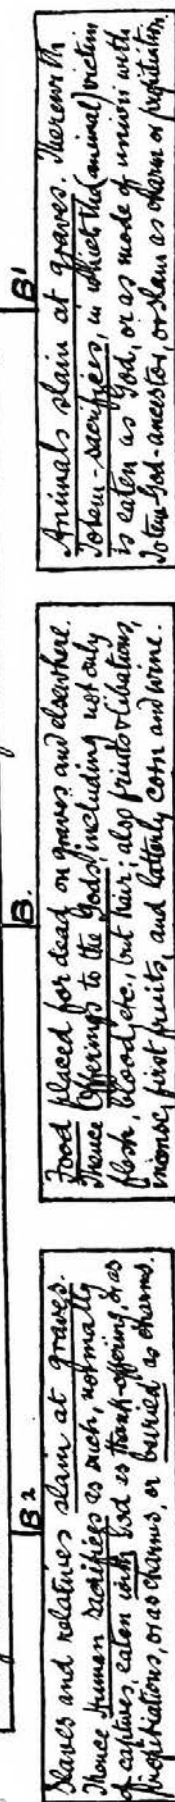 B²
Slaves and relatives slain at graves.
Thence Human sacrifices as such, normally
of captives, eaten with God as thank-offering, & as
propitiations, or as charms, or buried as charms.
B.
Food placed for dead on graves and elsewhere.
Thence Offerings to the Gods, including not only
flesh, blood, etc., but hair; also fruits & libations,
incense, first fruits, and latterly corn and wine.
B¹
Animals slain at graves. Therewith
Totem-sacrifices, in which the (animal) victim
is eaten as God, or as mode of union with
Totem-God-ancestor, or slain as charm or propitiation.